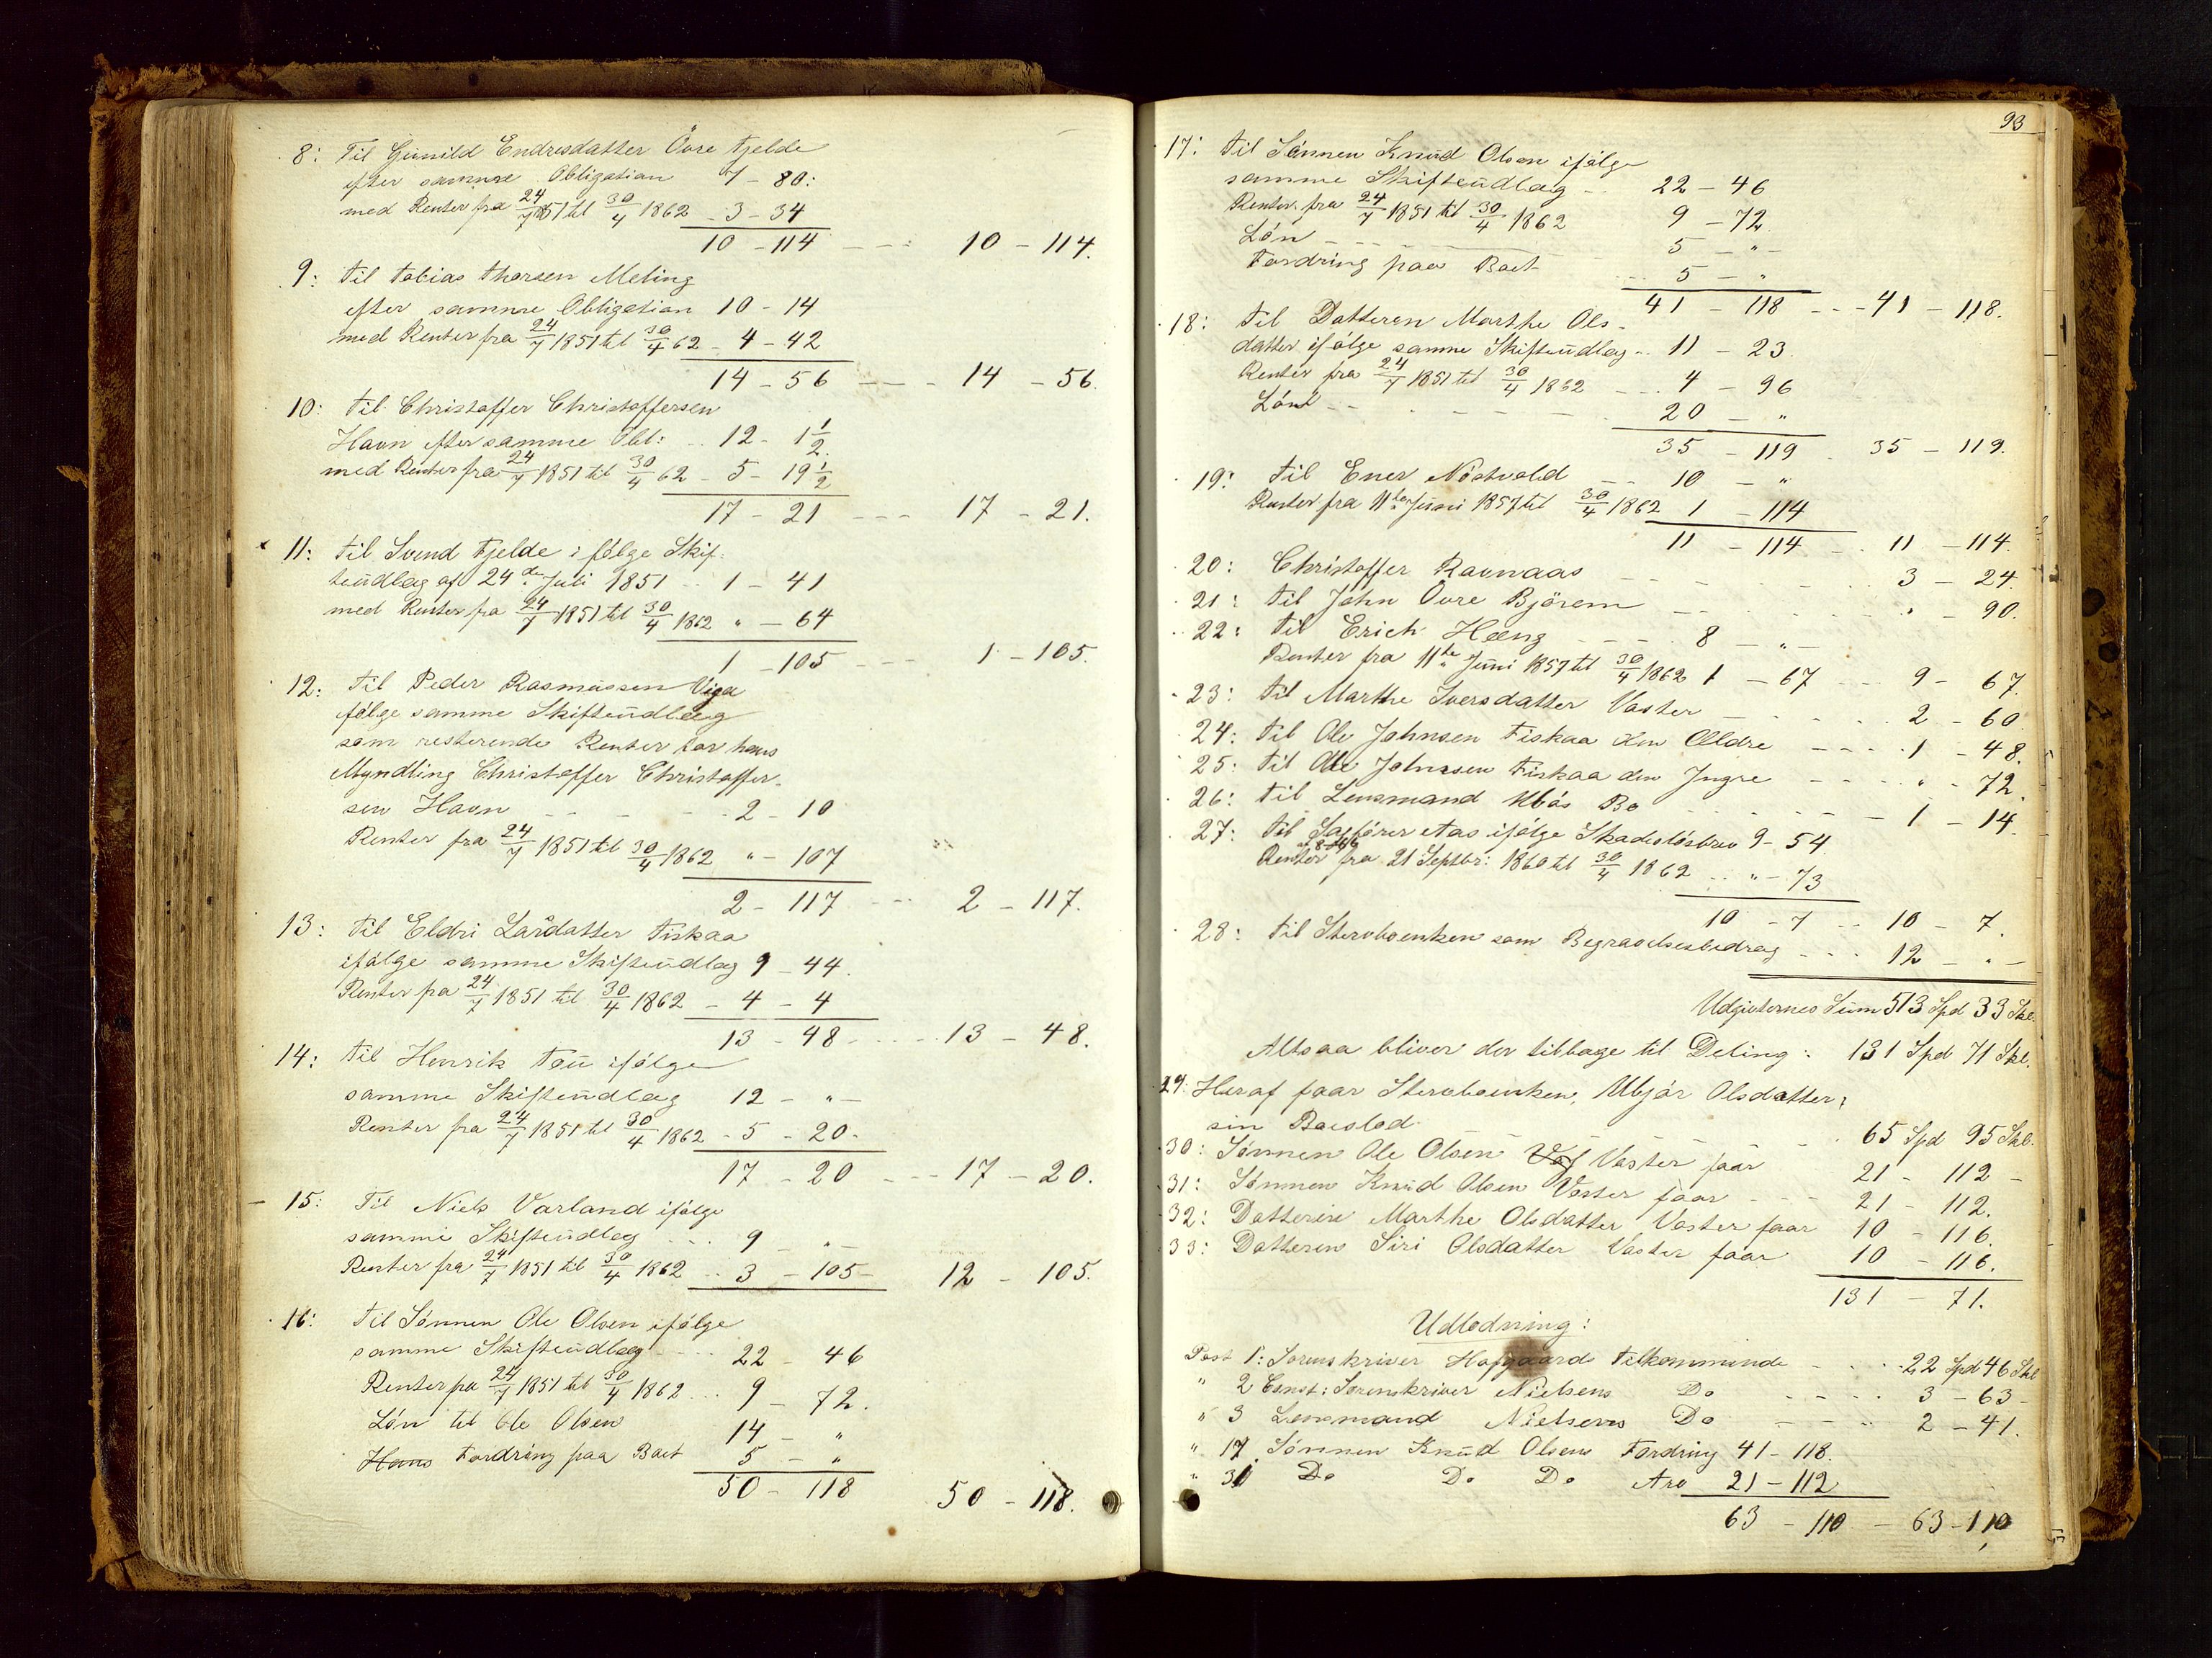 8: Til Gunild Endresdatter Övre Fjelde
efter samme Obligation 7 - 80:
med Renter fra 24/7 1851 til 30/4 1862 - 3 - 34
10 - 114 - - - 10 - 114.
9: Til Tobias Thorsen Meling
efter samme Obligation 10 - 14
med Renter fra 24/7 1851 til 30/4 62 - 4 - 42
14 - 56 - - - 14 - 56.
10: Til Christoffer Christoffersen
Havn efter samme Obl: - 12 - 1 1/2
med Renter fra 24/7 1851 til 30/4 62 - 5 - 19 1/2
17 - 21 - - - 17 - 21.
11: Til Svend Fjelde i fölge Skif-
teudlæg af 24de Juli 1851 - - 1 - 41
med Renter fra 24/7 1851 til 30/4 1862 " - 64
1 - 105 - - - 1 - 105.
12: Til Peder Rasmussen Viga
fölge samme Skifteudlæg
som resterende Renter for hans
Myndling Christoffer Christoffer-
sen Havn - - - - 2 - 10
Renter fra 24/7 1851 til 30/4 1862 " - 107
2 - 117 - - - 2 - 117.
13: Til Eldri Larsdatter Fiskaa
ifölge samme Skifteudlæg 9 - 44.
Renter fra 24/7 1851 til 30/4 1862 - 4 - 4
13 - 48 - - - 13 - 48.
14: Til Henrik Tou ifölge
samme Skifteudlæg 12 - " -
Renter fra 24/7 1851 til 30/4 1862 - 5 - 20 -
17 - 20 - - - 17 - 20.
15: Til Niels Varland ifölge
samme Skifteudlæg - - - 9 - " -
Renter fra 24/7 1851 til 30/4 1862 - 3 - 105 - 12 - 105.
16: Til Sönnen Ole Olsen ifölge
samme Skifteudlæg - - - 22 - 46
Renter fra 24/7 1851 til 30/4 1862 - - 9 - 72.
Lön til Ole Olsen 14 - "
Hans Fordring paa Baet 5 - "
50 - 118 50 - 118.
93
17: Til Sönnen Knud Olsen ifölge
samme Skifteudlæg - - 22 - 46
Renter fra 24/7 1851 til 30/4 1862 9 - 72.
Lön - - - - 5 - " -
Fordring paa Baet - - - 5 - "
41 - 118 - - - 41 - 118.
18: Til Datteren Marthe Ols-
datter ifölge samme Skifteudlæg - 11 - 23.
Renter fra 24/7 1851 til 30/4 1862 - - - 4 - 96
Lön - - - - - 20 - "
35 - 119 - 35 - 119.
19: Til Ener Nöstvold - - 10 - "
Renter fra 11te Juni 1857 til 30/4 1862 1 - 114
11 - 114 - - 11 - 114.
20: Christoffer Ravnaas - - - - 3 - 24.
21: Til John Övre Björeim - - - - " - 90.
22: Til Erich Hæng - - - 8 - " -
Renter fra 11te Juni 1857 til 30/4 1862 1 - 67 - - 9 - 67.
23: Til Marthe Iversdatter Vaster - - - - 2 - 60
24: Til Ole Johnsen Fiskaa den Ældre - - - - 1 - 48.
25: Til Ole Johnsen Fiskaa den Yngre - - - - " - 72.
26: Til Lensmand Bö - - - - 1 - 14.
27: Til Sagförer Aas ifölge Skadeslösbrev 9 - 54.
Renter fra 21 Septbr: 1860 til 30/4 1862 - - " - 73
10 - 7 - - 10 - 7.
28: Til Sterboenken som Begravelsesbidrag - - - 12 - " -
Udgivternes Sum 513 Spd 33 Skl.
Altsaa bliver der tilbage til Deling: 131 Spd 71 Skl.
29: Heraf faar Sterboenken, Ubjör Olsdatter,
sin Boeslod - - - 65 Spd 95 Skl.
30: Sönnen Ole Olsen Vaster faar 21 - 112 -
31: Sönnen Knud Olsen Vaster faar - - - 21 - 112.
32: Datteren Marthe Olsdatter Vaster faar 10 - 116.
33: Datteren Siri Olsdatter Vaster faar 10 - 116.
131 - 71.
Udlodning:
Post 1: Sorenskriver Hofgaards Tilkommende - - - 22 Spd 46 Skl
" 2 Const: Sorenskriver Nielsens Do - - - - 3 - 63 -
" 3 Lensmand Nielsens Do - - - - 2 - 41.
" 17 Sönnen Knud Olsens Fordring 41 - 118.
" 31 Do Do Do Arv 21 - 112
63 - 110 - 63 - 110